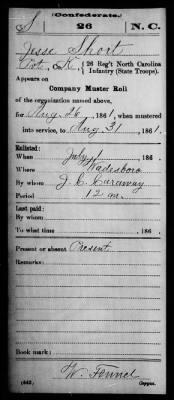 (Confederate.)
S 26 N.C.
Jesse Short
Pvt, Co. K, 26 Reg't North Carolina
Infantry (State Troops).
Appears on
Company Muster Roll
of the organization named above,
for Aug 26, 1861, when mustered
into service, to Aug 31, 1861.
Enlisted:
When July 1, 186 .
Where Wadesboro
By whom J. C. Caraway
Period 12 m.
Last paid:
By whom
To what time , 186 .
Present or absent Present
Remarks:
Book mark:
W. Fennel
(642) Copyist.